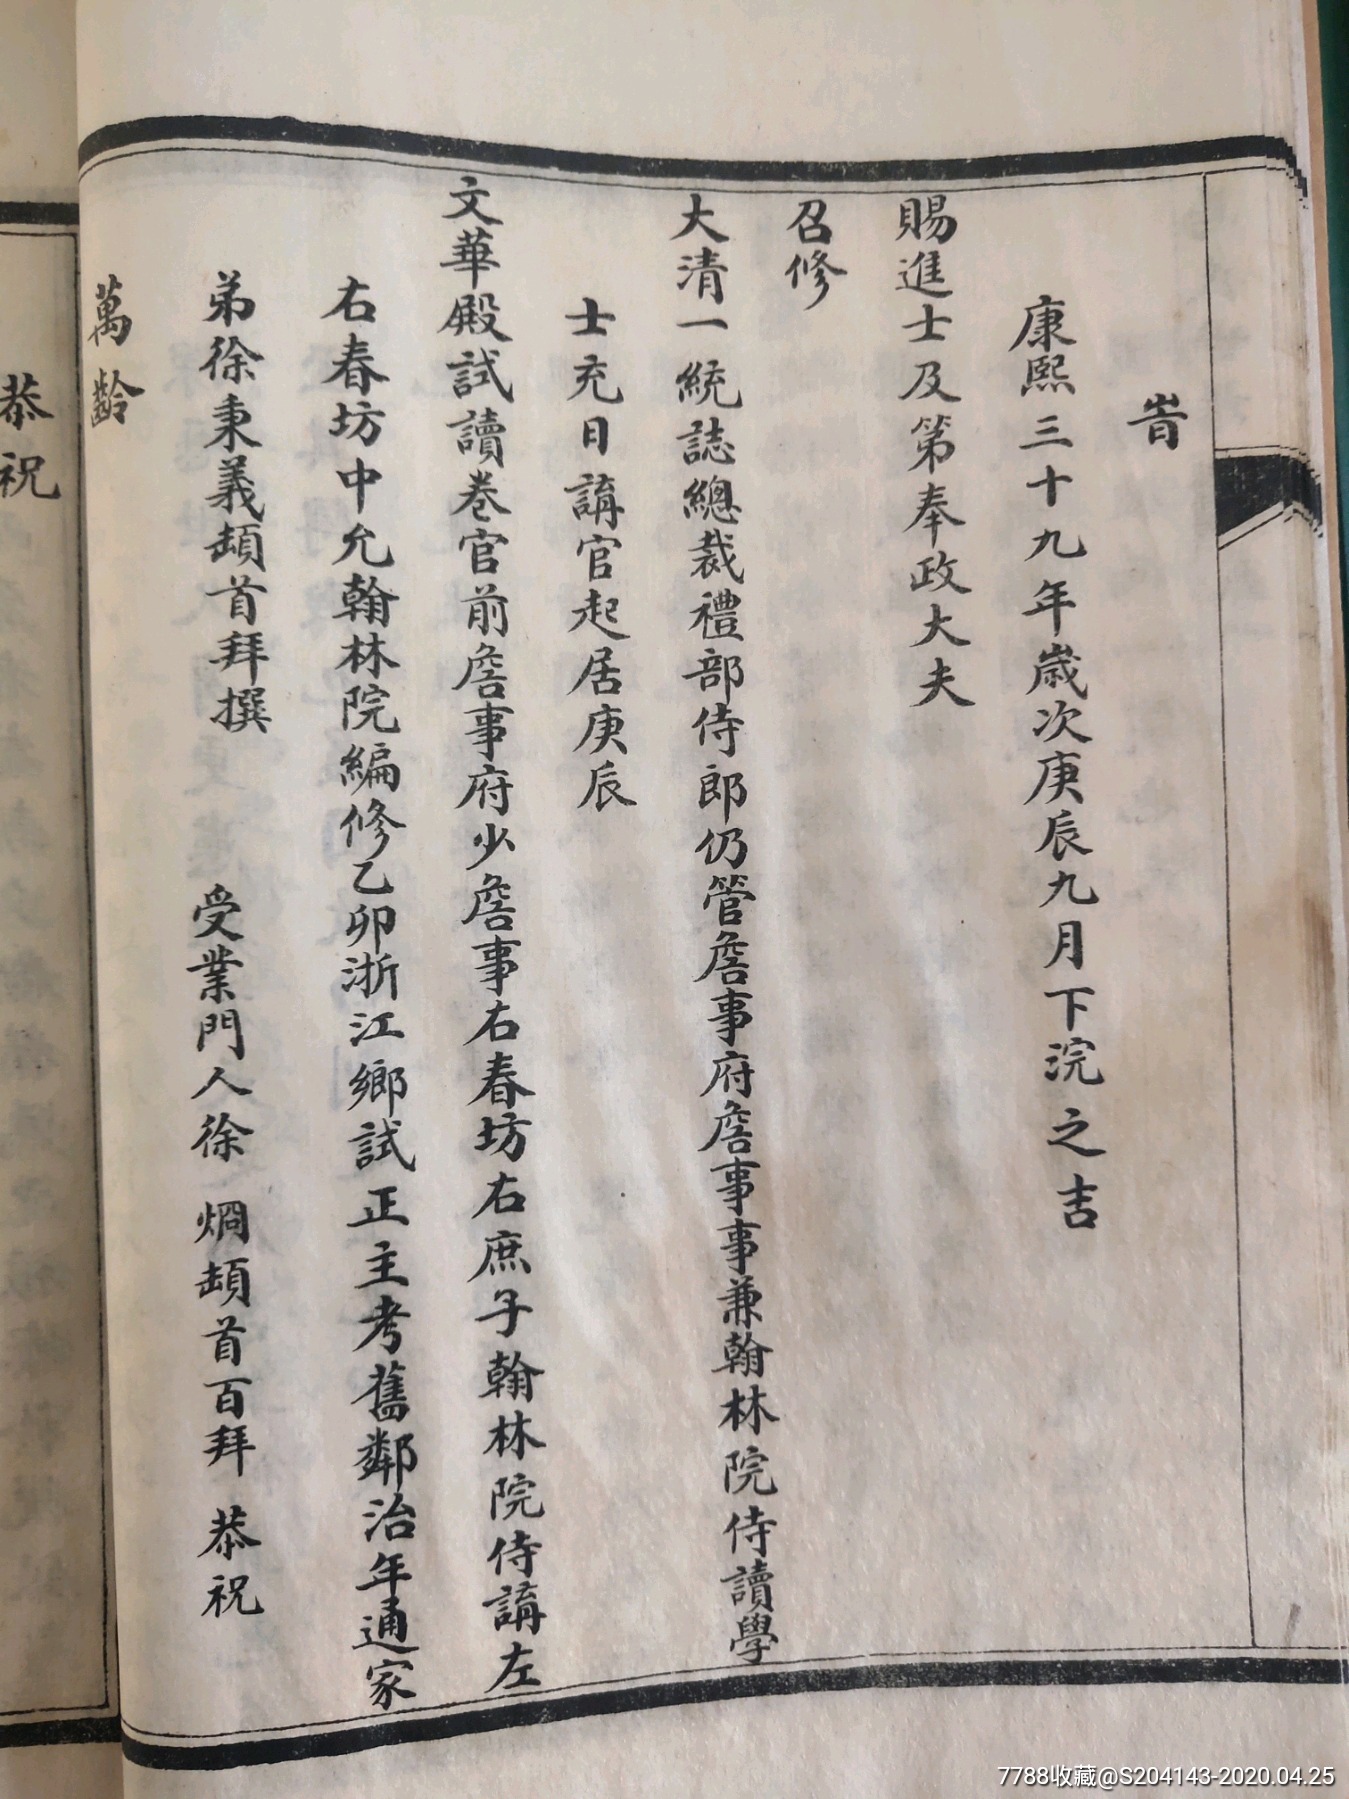 旹
康熙三十九年歲次庚辰九月下浣之吉
賜進士及第奉政大夫
召修
大清一統誌總裁禮部侍郎仍管詹事府詹事事兼翰林院侍讀學
士充日講官起居庚辰
文華殿試讀卷官前詹事府少詹事右春坊右庶子翰林院侍講左
右春坊中允翰林院編修乙卯浙江鄉試正主考舊鄰治年通家
弟徐秉義頓首拜撰 受業門人徐烱頓首百拜恭祝
萬齡
恭祝
7788收藏@S204143-2020.04.25